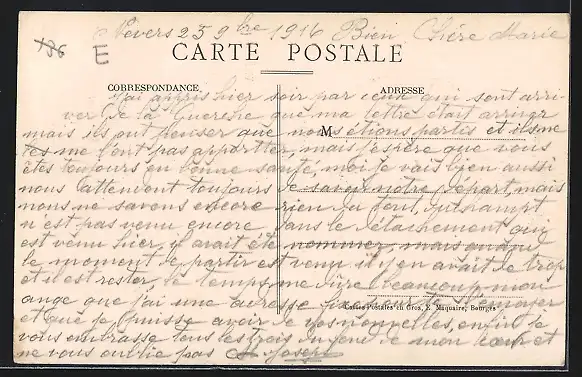 186
E
Nevers 25 9bre 1916 Bien Chère Marie
CARTE POSTALE
CORRESPONDANCE
ADRESSE
M
j'ai appris hier soir par ceux qui sont arri-
ver de la Guerche que ma lettre était arriver
mais ils ont penser que nous étions partis et ils me
me l'ont pas apportter, mais j'espère que vous
êtes toujours en bonne santé, moi je vais bien aussi
nous attendont toujours de savoir notre depart, mais
nous ne savons encore rien du tout,
n'est pas venu encore dans le détachement qui
est venu hier, il avait été nommer mais au
le moment de partir est venu il y en avait de trop
et il est rester, le temps me dure beaucoup mon
ange que j'ai une adresse fixe pour te l'envoyer
et que je puisse avoir de vos nouvelles, enfin je
vous embrasse tous les trois du fond de mon cœur et
ne vous oublie pas Joseph
Cartes Postales en Gros, E. Maquaire, Bourges